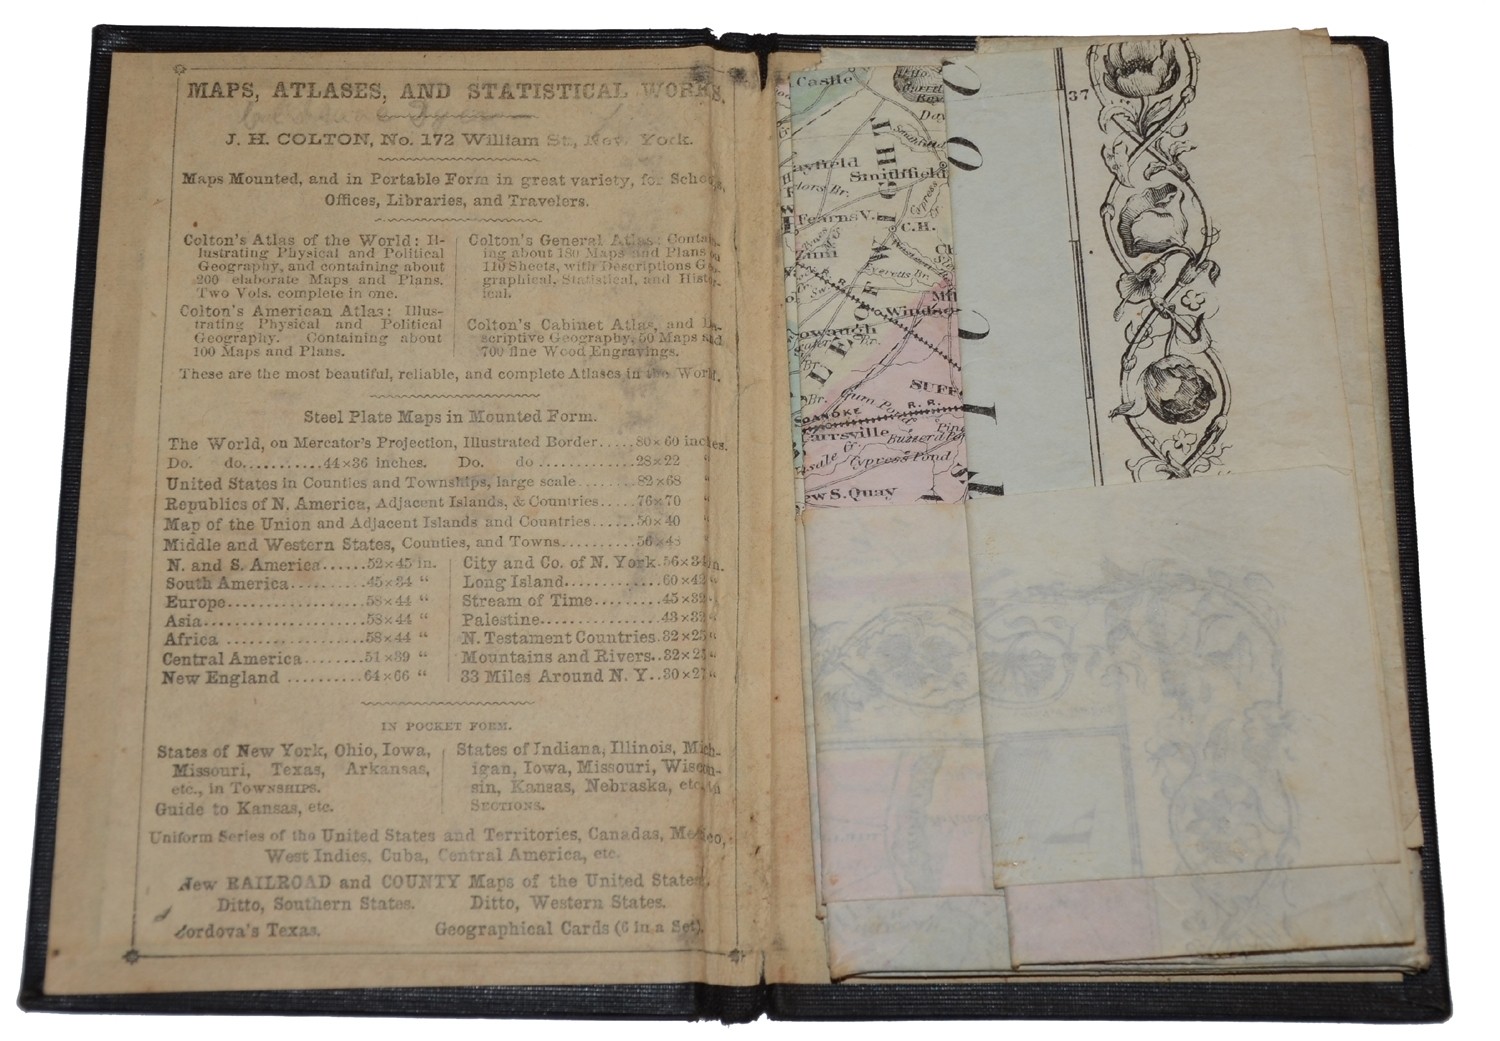 MAPS, ATLASES, AND STATISTICAL WORKS,
J. H. COLTON, No. 172 William St., New York.
Maps Mounted, and in Portable Form in great variety, for Schools,
Offices, Libraries, and Travelers.
Colton's Atlas of the World: Il-
lustrating Physical and Political
Geography, and containing about
200 elaborate Maps and Plans.
Two Vols. complete in one.
Colton's American Atlas: Illus-
trating Physical and Political
Geography. Containing about
100 Maps and Plans.
Colton's General Atlas: Contain-
ing about 180 Maps and Plans on
110 Sheets, with Descriptions Geo-
graphical, Statistical, and Histor-
ical.
Colton's Cabinet Atlas, and De-
scriptive Geography, 50 Maps and
700 fine Wood Engravings.
These are the most beautiful, reliable, and complete Atlases in the World.
Steel Plate Maps in Mounted Form.
The World, on Mercator's Projection, Illustrated Border.....80×60 inches.
Do. do...........44×36 inches. Do. do .............28×22 "
United States in Counties and Townships, large scale........82×68 "
Republics of N. America, Adjacent Islands, & Countries.....76×70 "
Map of the Union and Adjacent Islands and Countries......50×40 "
Middle and Western States, Counties, and Towns..........56×48 "
N. and S. America......52×45 in.
South America..........45×34 "
Europe...................58×44 "
Asia......................58×44 "
Africa ....................58×44 "
Central America........51×39 "
New England ..........64×66 "
City and Co. of N. York.56×34 in.
Long Island.............60×42 "
Stream of Time.........45×32 "
Palestine.................43×32 "
N. Testament Countries.32×25 "
Mountains and Rivers..32×25 "
33 Miles Around N. Y..30×27 "
IN POCKET FORM.
States of New York, Ohio, Iowa,
Missouri, Texas, Arkansas,
etc., in TOWNSHIPS.
Guide to Kansas, etc.
States of Indiana, Illinois, Mich-
igan, Iowa, Missouri, Wiscon-
sin, Kansas, Nebraska, etc., in
SECTIONS.
Uniform Series of the United States and Territories, Canadas, Mexico,
West Indies, Cuba, Central America, etc.
New RAILROAD and COUNTY Maps of the United States.
Ditto, Southern States. Ditto, Western States.
Cordova's Texas. Geographical Cards (6 in a Set).
Castle
Day
Smithfield
Smithfield
Cypress
Fearns V.
C.H.
Zuni
Everetts Br.
Windsor
ISLE OF WIGHT
SUFF
Gum Po
ROANOKE R. R.
Carrsville
Buzzard Po
Cypress Pond
ew S. Quay
37